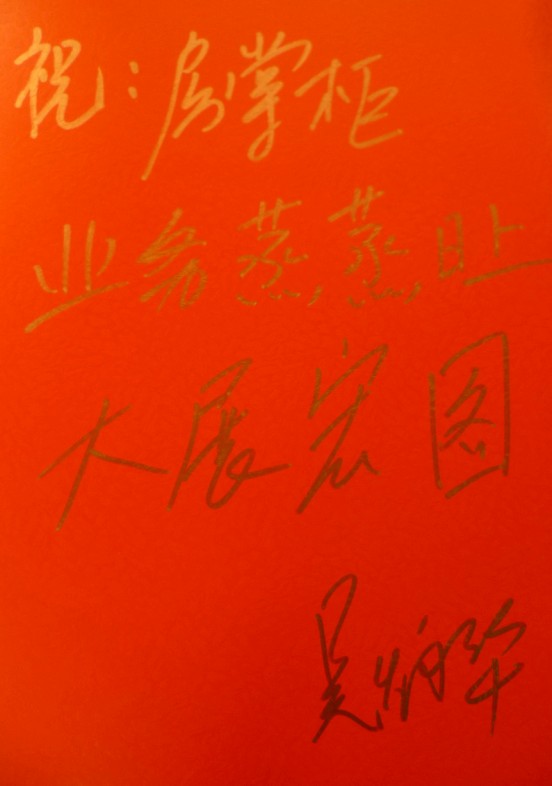 祝：房掌柜
业务蒸蒸日上
大展宏图
吴炳华